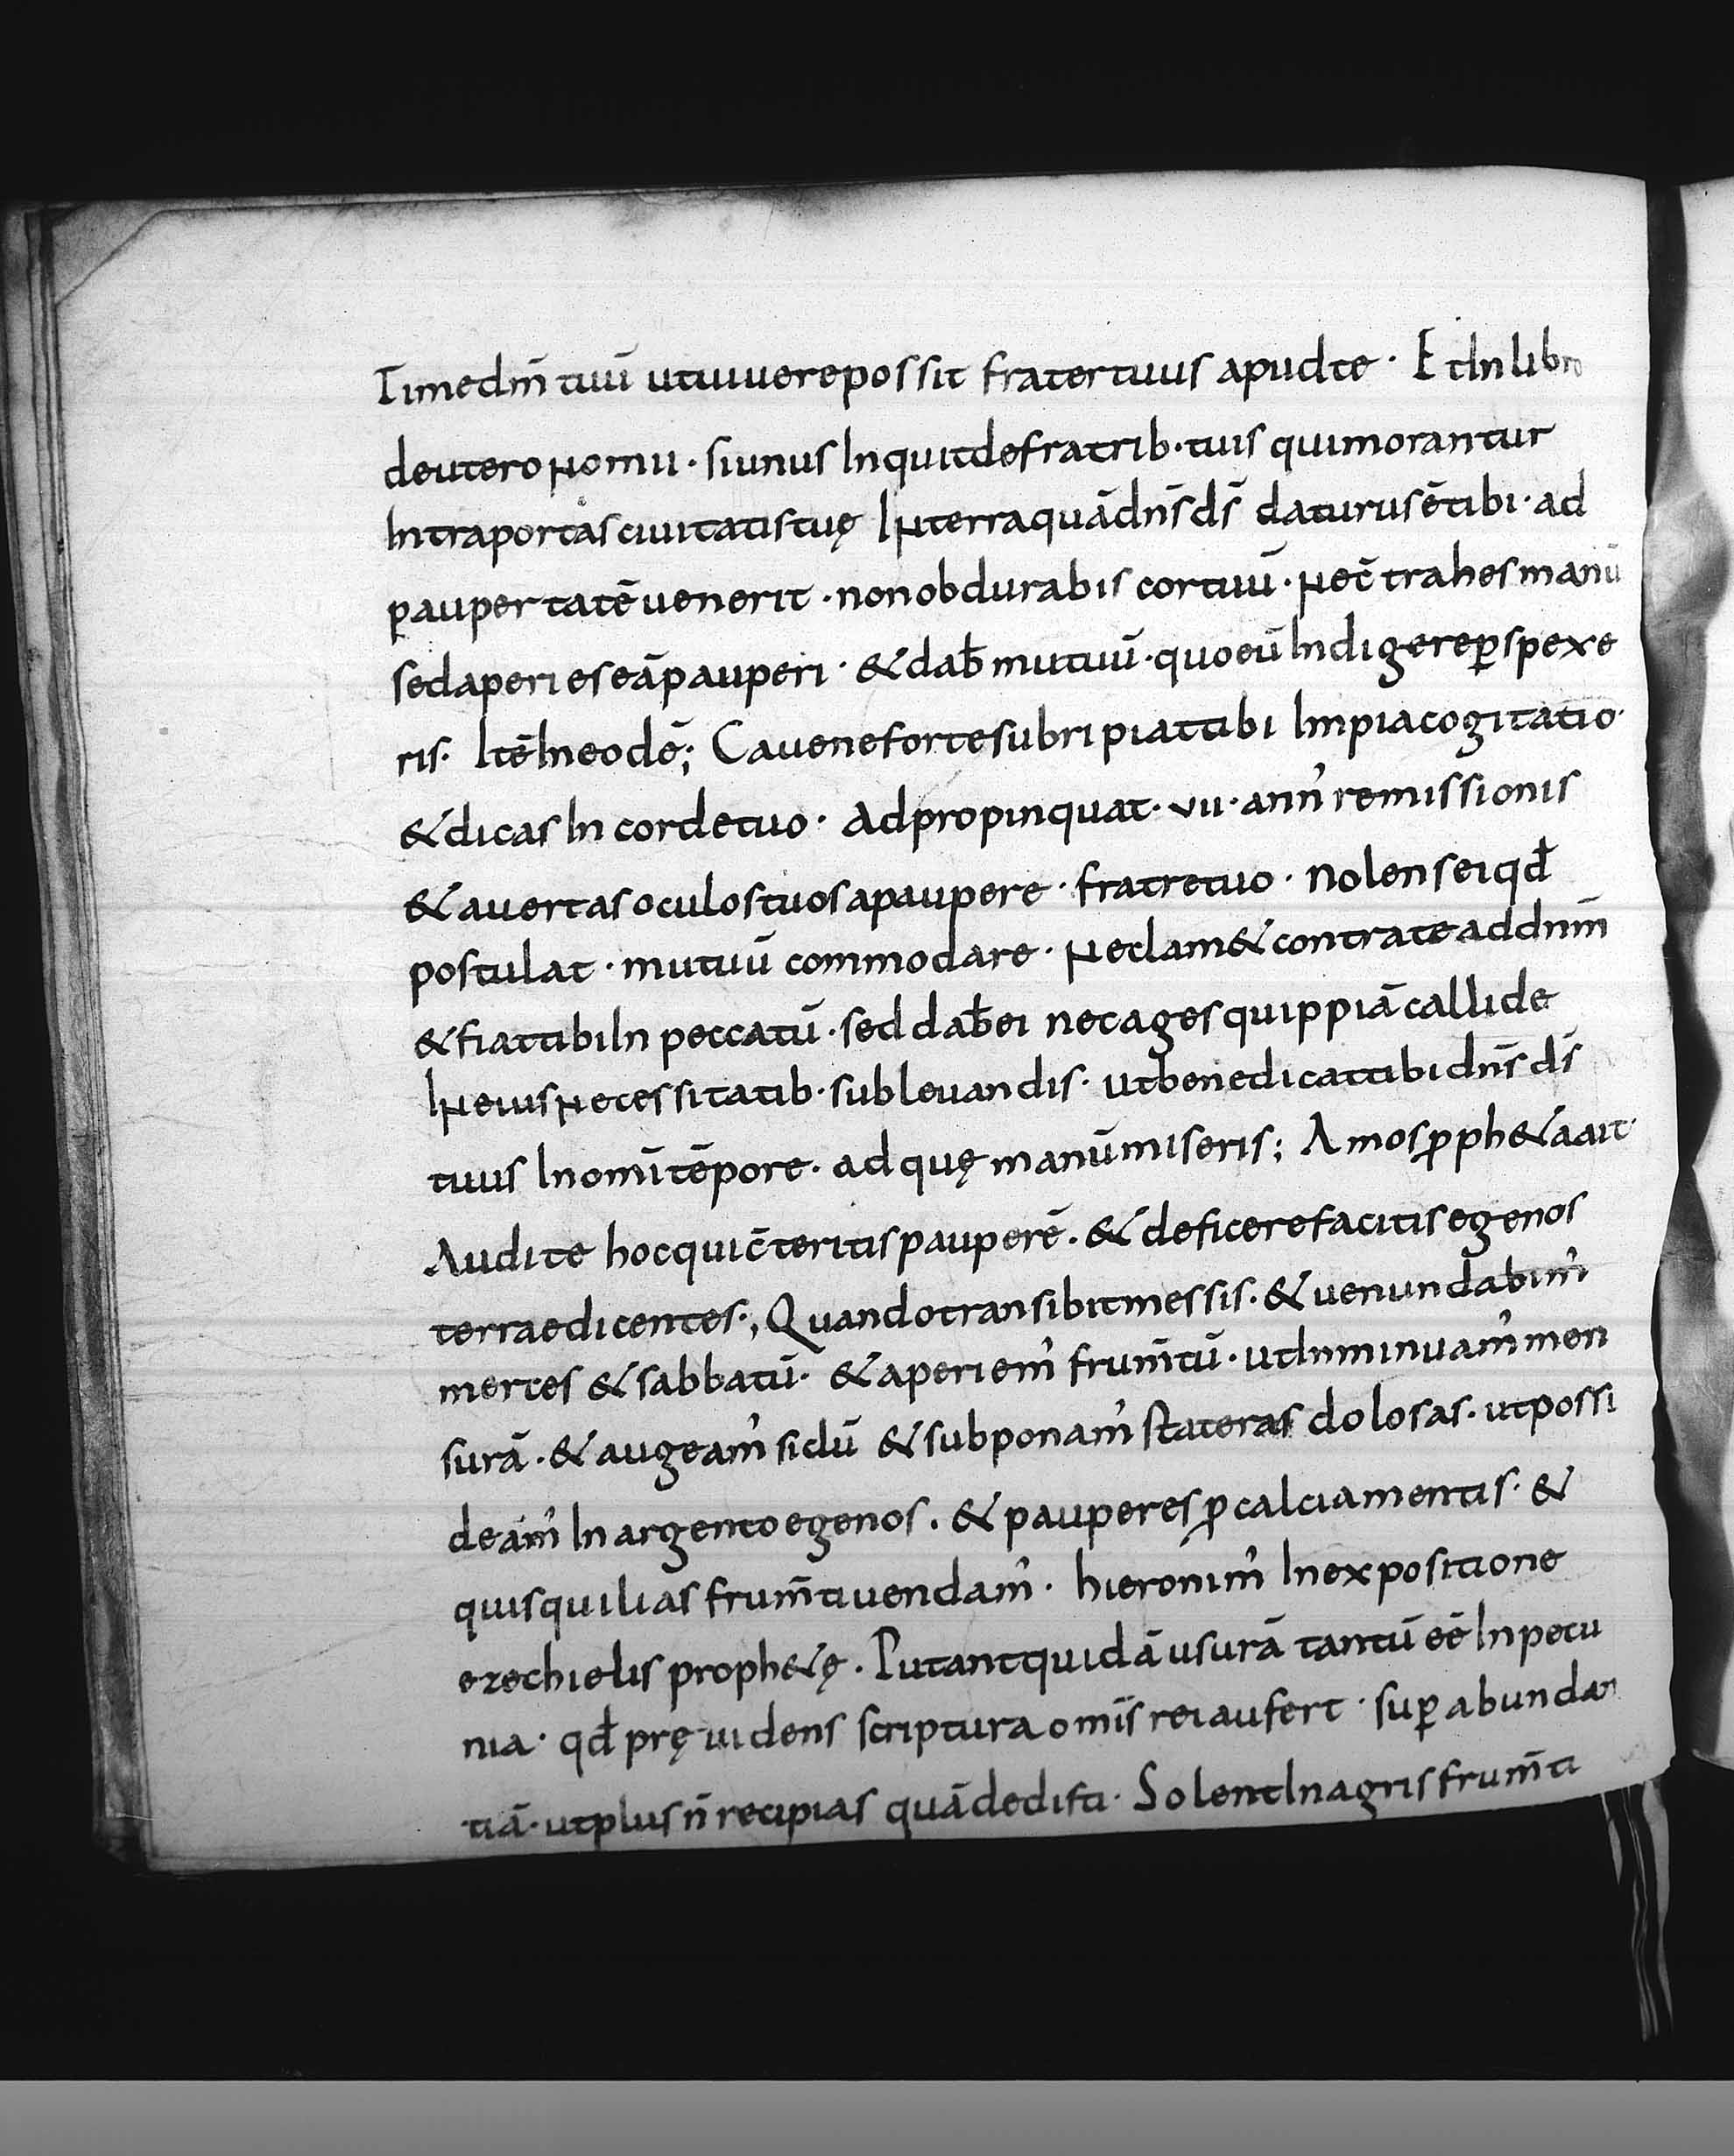 Time dm̄ tuū ut uiuere possit frater tuus apud te · Et In libro
deuteronomii · si unus Inquit de fratrib· tuis qui morantur
Intra portas ciuitatis tuę In terra quā dn̄s ds̄ daturus ē tibi · ad
paupertatē uenerit · non obdurabis cor tuū · nec c̄trahes manū
sed aperies eā pauperi · & dab̄ mutuū · quo eū Indigere ꝑspexe
ris · Itē In eodē; Caue ne forte subripiat tibi Impia cogitatio·
& dicas In corde tuo · Adpropinquat · vii · ann' remissionis
& auertas oculos tuos a paupere · fratre tuo · nolens ei qđ
postulat · mutuū commodare · ne clam& contra te ad dnm̄
& fiat tibi In peccatū · sed dab̄ ei nec ages quippiā callide
In eius necessitatib· subleuandis · ut benedicat tibi dn̄s ds̄
tuus In omī tēpore · ad quę manū miseris; Amos ꝓph&a ait·
Audite hoc qui c̄teritis pauperē · & deficere facitis egenos
terrae dicentes·; Quando transibit messis · & uenundabim'
merces & sabbatū · & aperiem' frum̄tū · ut Inminuam' men
surā · & augeam' siclū & subponam' stateras dolosas · ut possi
deam' In argento egenos · & pauperes ꝓ calciamentis · &
quisquilias frum̄ti uendam' · hieronim' In expositione
ezechielis proph&ę · Putant quidā usurā tantū eē In pecu
nia · qđ pręuidens scriptura omīs rei aufert · suꝑabundan
tiā · ut plus n̄ recipias quā dedisti · Solent In agris frum̄ti